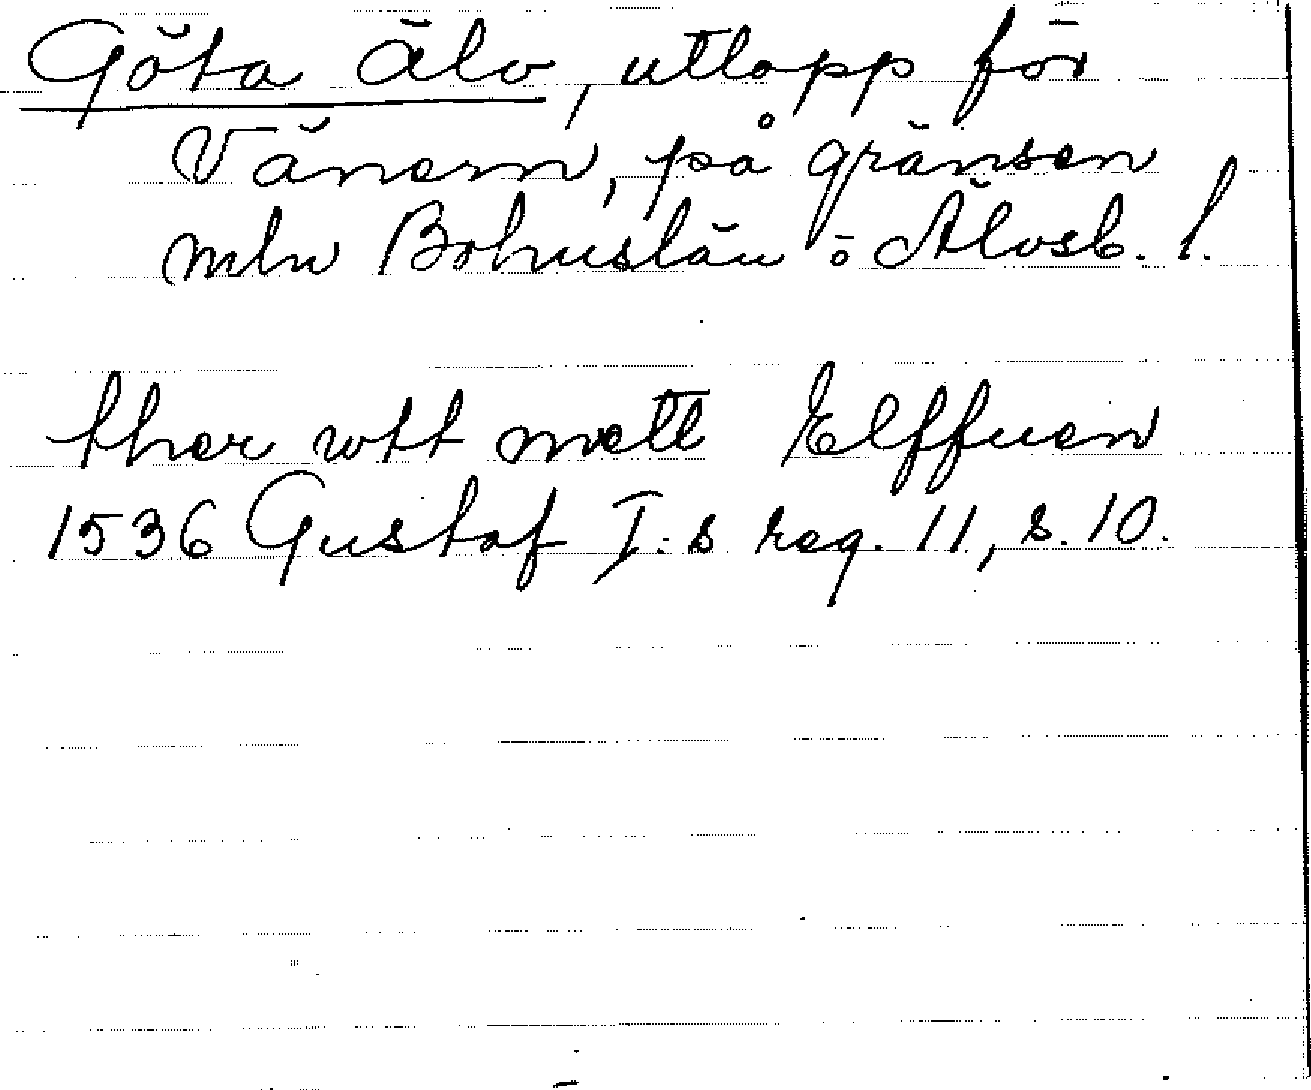 Göta älv, utlopp för
Vänern, på gränsen
mln Bohuslän o Älvsb. l.
ther wtt mett Elffuen
1536 Gustaf I:s reg. 11, s. 10.